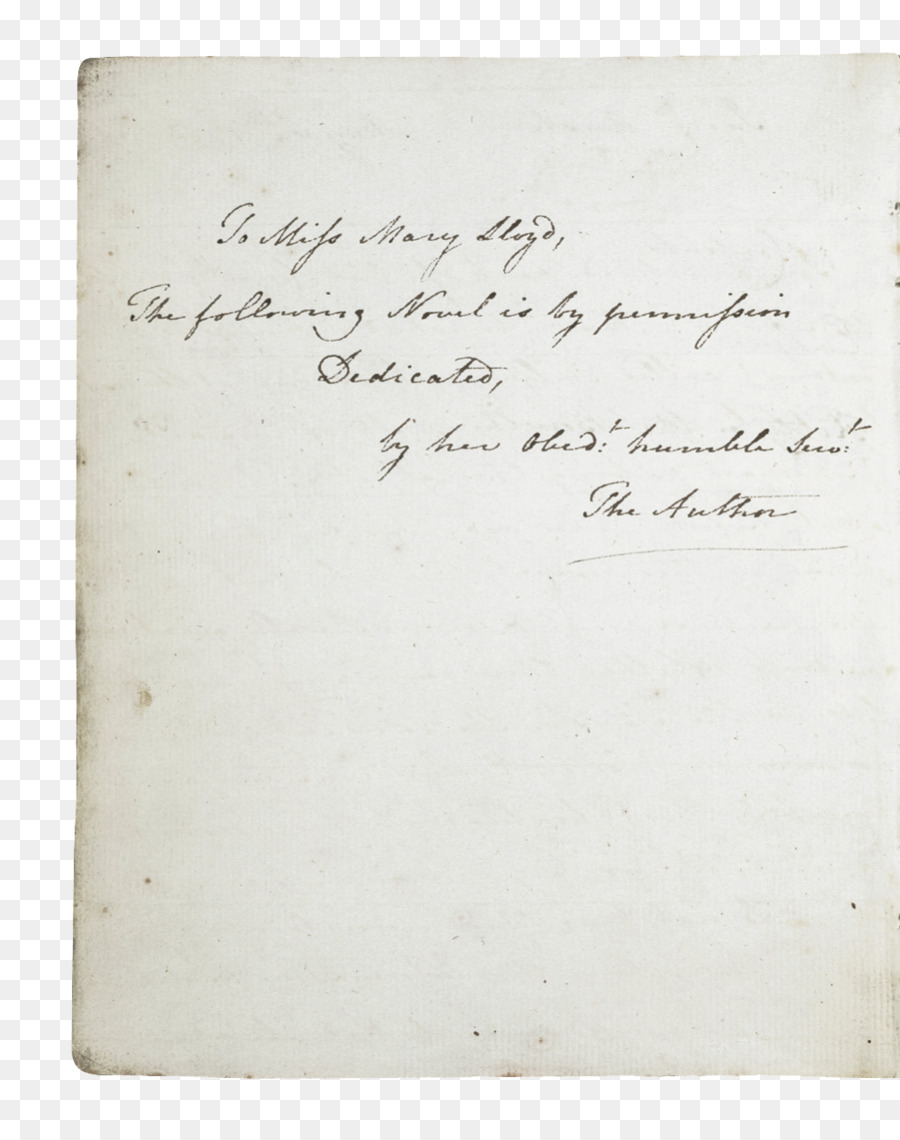 To Miſs Mary Lloyd,
The following Novel is by permiſsion
Dedicated,
by her Obed:t humble Serv:t
The Author